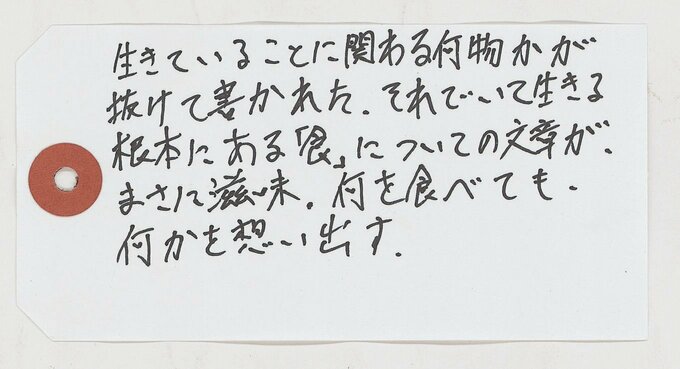 生きていることに関わる何物かが
抜けて書かれた．それでいて生きる
根本にある「食」についての文章が、
まさに滋味．何を食べても、
何かを想い出す．